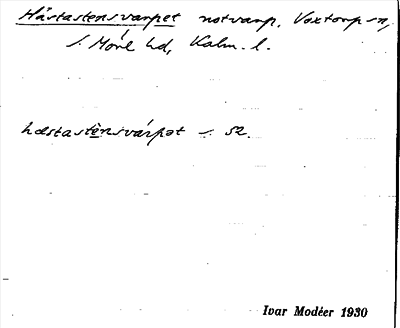 Håstastensvarpet notvarp. Voxtorp sn,
S. Möre hd, Kalm. l.
hæstastènsvárpət s. 52.
Ivar Modéer 1930